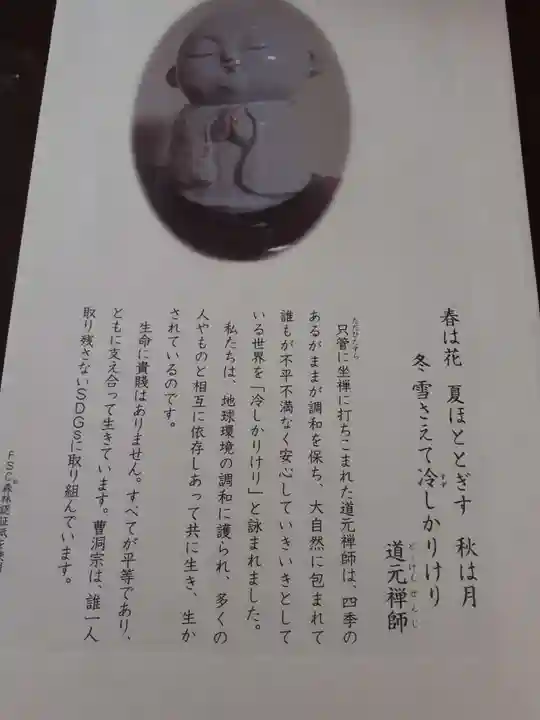 春は花 夏ほととぎす 秋は月
冬 雪さえて冷しかりけり
道元禅師
只管に坐禅に打ちこまれた道元禅師は、四季の
あるがままが調和を保ち、大自然に包まれて
誰もが不平不満なく安心していきいきとして
いる世界を「冷しかりけり」と詠まれました。
私たちは、地球環境の調和に護られ、多くの
人やものと相互に依存しあって共に生き、生か
されているのです。
生命に貴賤はありません。すべてが平等であり、
ともに支え合って生きています。曹洞宗は、誰一人
取り残さないSDGsに取り組んでいます。
FSC®森林認証紙を